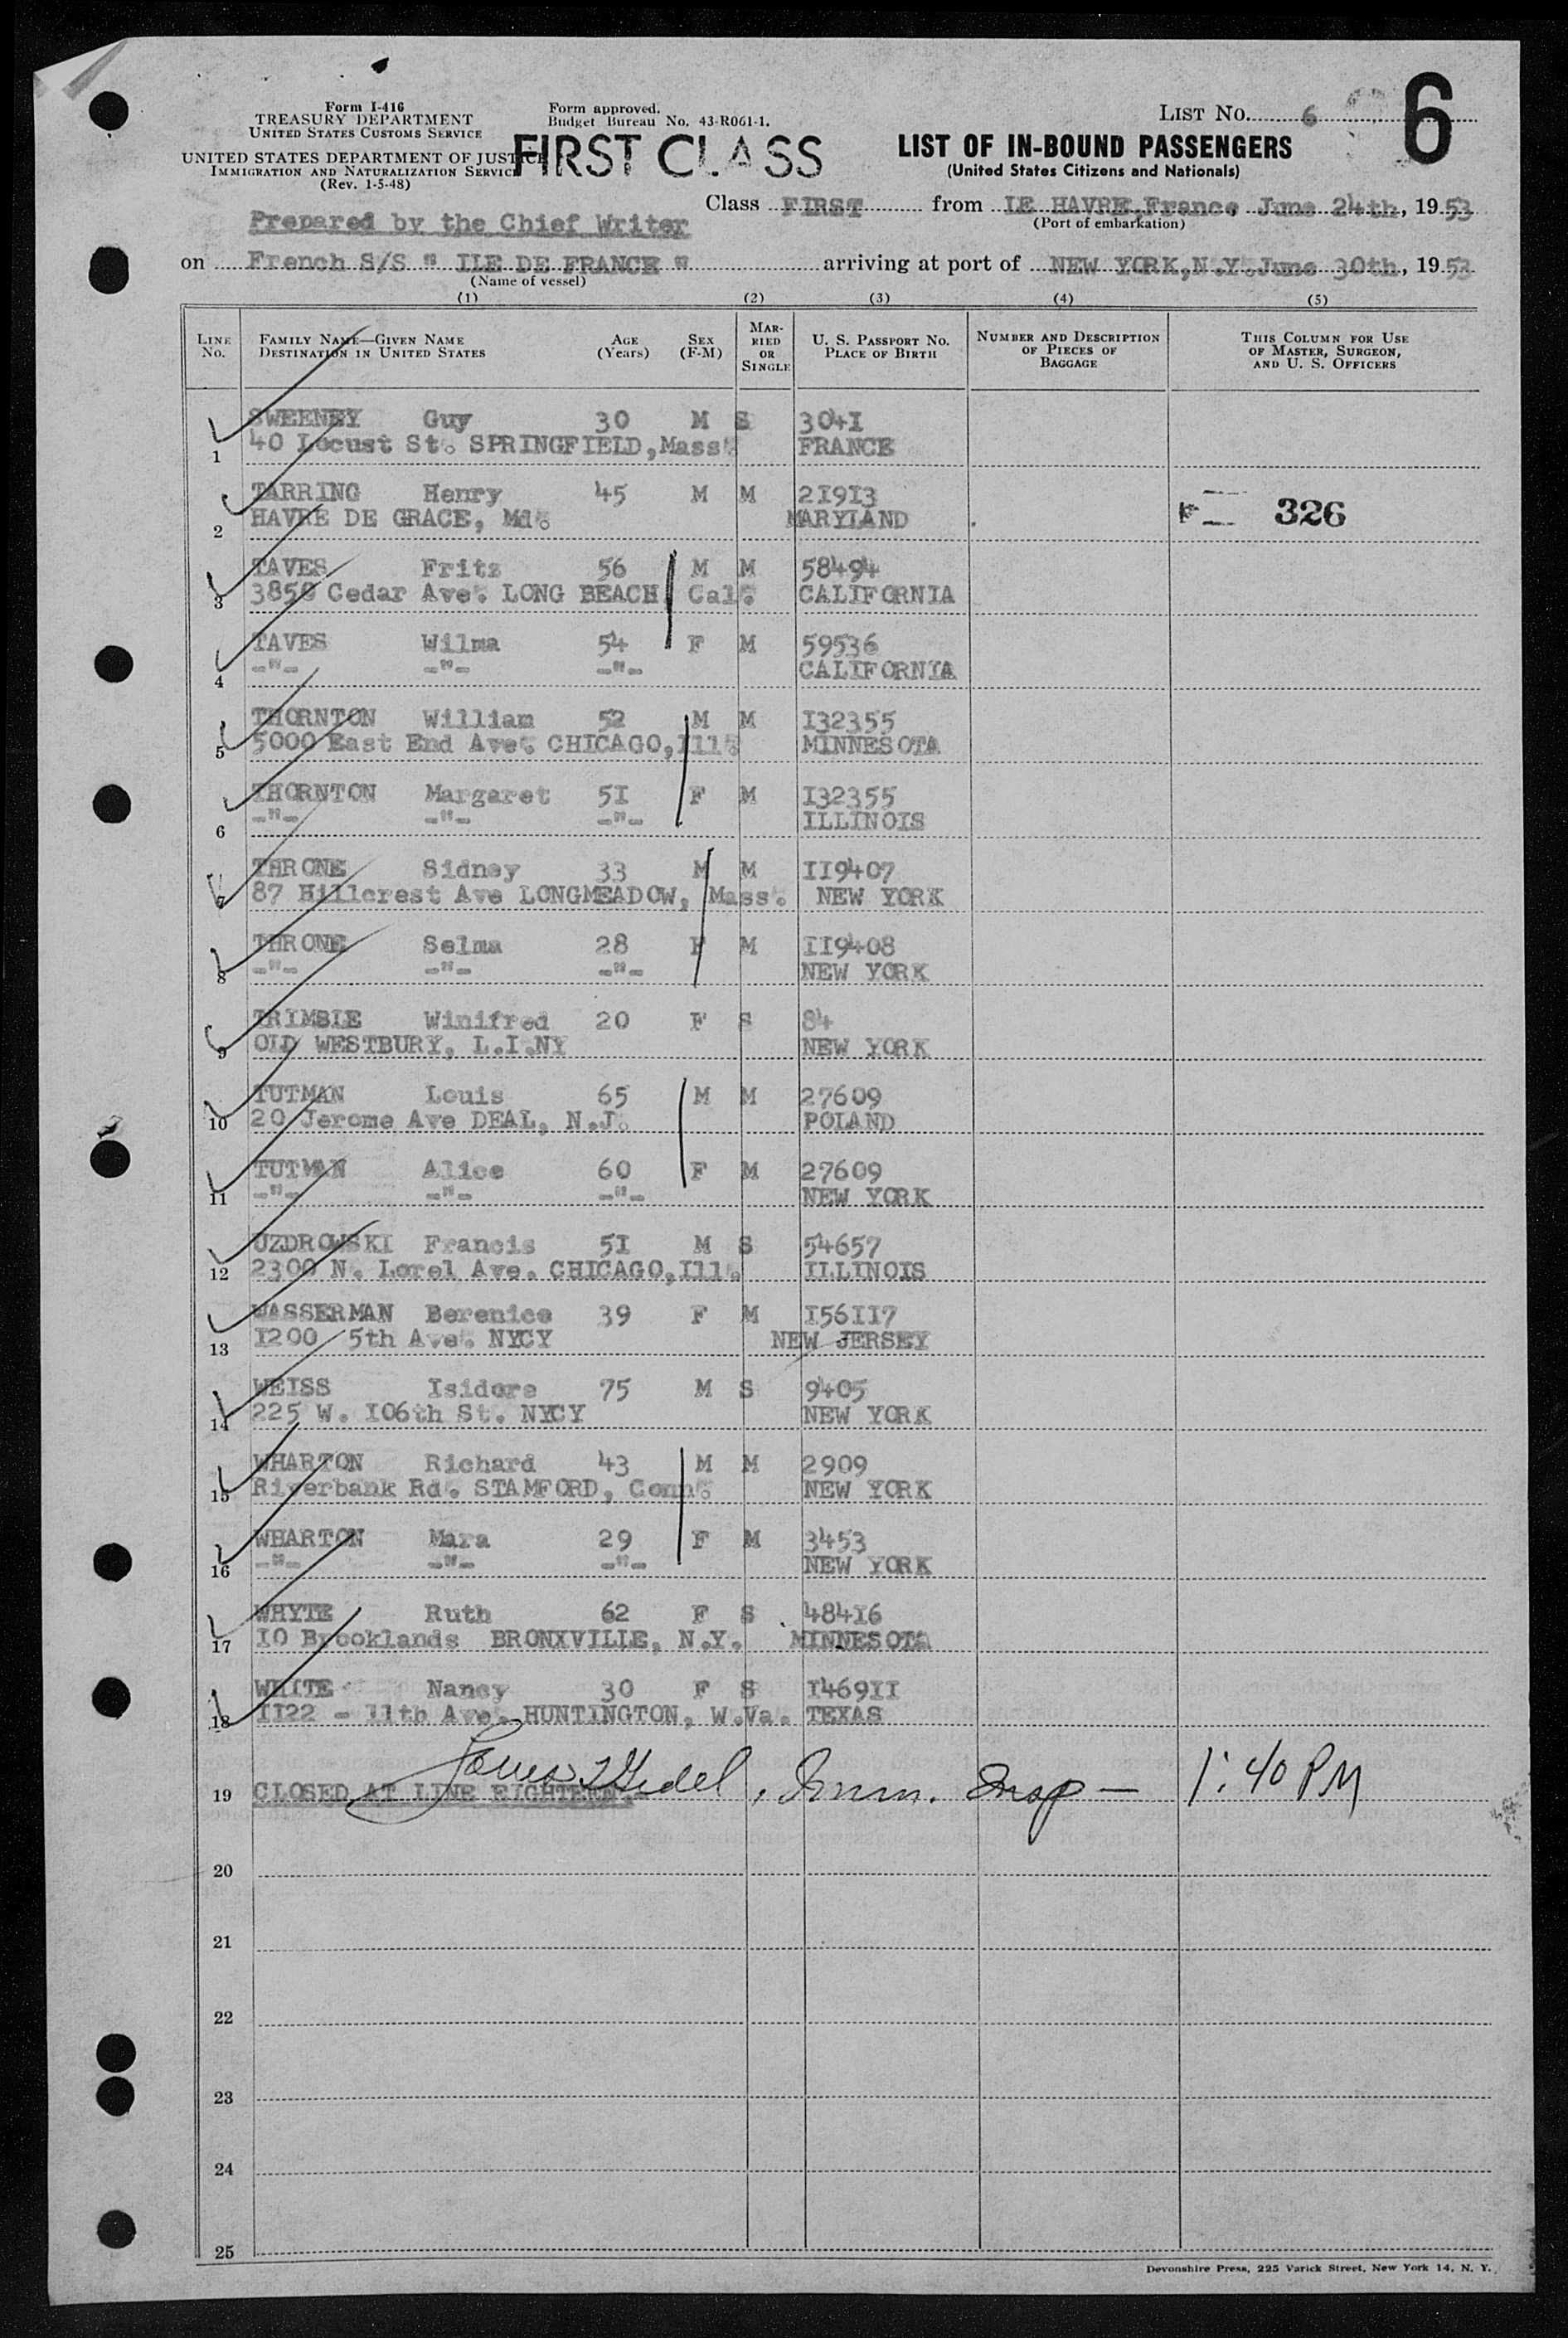 Form I-416
TREASURY DEPARTMENT
UNITED STATES CUSTOMS SERVICE
UNITED STATES DEPARTMENT OF JUSTICE
IMMIGRATION AND NATURALIZATION SERVICE
(Rev. 1-5-48)
Form approved.
Budget Bureau No. 43-R061-1.
FIRST CLASS
LIST NO. 6
6
LIST OF IN-BOUND PASSENGERS
(United States Citizens and Nationals)
Prepared by the Chief Writer
Class FIRST from LE HAVRE,France, June 24th, 1953
(Port of embarkation)
on French S/S " ILE DE FRANCE " arriving at port of NEW YORK,N.Y.June 30th, 1953
(Name of vessel)
(1) (2) (3) (4) (5)
LINE No.
FAMILY NAME—GIVEN NAME
DESTINATION IN UNITED STATES
AGE (Years)
SEX (F-M)
MARRIED OR SINGLE
U. S. PASSPORT NO.
PLACE OF BIRTH
NUMBER AND DESCRIPTION OF PIECES OF BAGGAGE
THIS COLUMN FOR USE OF MASTER, SURGEON, AND U. S. OFFICERS
SWEENEY Guy 30 M S 304I
1 40 Locust St. SPRINGFIELD,Mass. FRANCE
TARRING Henry 45 M M 2I9I3
2 HAVRE DE GRACE, Md. MARYLAND 326
TAVES Fritz 56 M M 58494
3 3850 Cedar Ave. LONG BEACH Cal. CALIFORNIA
TAVES Wilma 54 F M 59536
4 -"- -"- -"- CALIFORNIA
THORNTON William 52 M M I32355
5 5000 East End Ave. CHICAGO,Ill. MINNESOTA
THORNTON Margaret 5I F M I32355
6 -"- -"- -"- ILLINOIS
THRONE Sidney 33 M M II9407
7 87 Hillcrest Ave LONGMEADOW, Mass. NEW YORK
THRONE Selma 28 F M II9408
8 -"- -"- -"- NEW YORK
TRIMBLE Winifred 20 F S 84
9 OLD WESTBURY, L.I.NY NEW YORK
TUTMAN Louis 65 M M 27609
10 20 Jerome Ave DEAL, N.J. POLAND
TUTMAN Alice 60 F M 27609
11 -"- -"- -"- NEW YORK
UZDROWSKI Francis 5I M S 54657
12 2300 N. Lorel Ave. CHICAGO,Ill. ILLINOIS
WASSERMAN Berenice 39 F M I56II7
13 I200 5th Ave. NYCY NEW JERSEY
WEISS Isidore 75 M S 9405
14 225 W. I06th St. NYCY NEW YORK
WHARTON Richard 43 M M 2909
15 Riverbank Rd. STAMFORD, Conn. NEW YORK
WHARTON Mara 29 F M 3453
16 -"- -"- -"- NEW YORK
WHYTE Ruth 62 F S 484I6
17 I0 Brooklands BRONXVILLE, N.Y. MINNESOTA
WHITE Nancy 30 F S I469II
18 II22 - 11th Ave. HUNTINGTON, W.Va. TEXAS
, Imm. Insp — 1:40 PM
19 CLOSED AT LINE EIGHTEEN.-
20
21
22
23
24
25
Devonshire Press, 225 Varick Street, New York 14, N. Y.